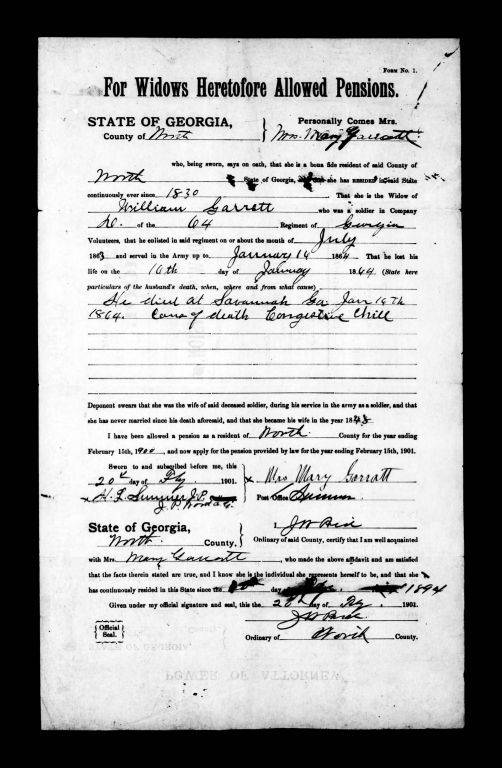 Form No. 1.
For Widows Heretofore Allowed Pensions.
STATE OF GEORGIA,
County of Worth
Personally Comes Mrs.
Mrs. Mary Garratt
who, being sworn, says on oath, that she is a bona fide resident of said County of
Worth State of Georgia, she has RESIDED in said State
continuously ever since 1830 That she is the Widow of
William Garrett who was a soldier in Company
D. of the 64 Regiment of Georgia
Volunteers, that he enlisted in said regiment on or about the month of July
1863 and served in the Army up to January 14 1864 That he lost his
life on the 16th day of January 1864 (State here
particulars of the husband's death, when, where and from what cause)
He died at Savannah Ga Jan 14th
1864. Caus of death Congestive Chill
Deponent swears that she was the wife of said deceased soldier, during his service in the army as a soldier, and that
she has never married since his death aforesaid, and that she became his wife in the year 1848
I have been allowed a pension as a resident of Worth County for the year ending
February 15th, 1900, and now apply for the pension provided by law for the year ending February 15th, 1901.
Sworn to and subscribed before me, this
20th day of Feby 1901.
H. L. Sumner J.P.
x Mrs Mary Garratt
Post Office Sumner
State of Georgia,
Worth County.
I, J W
Ordinary of said County, certify that I am well acquainted
with Mrs. Mary Garratt, who made the above affidavit and am satisfied
that the facts therein stated are true, and I know she is the individual she represents herself to be, and that she
has continuously resided in this State since the day 1894
Given under my official signature and seal, this the 20th day of Feby, 1901
J W
{Official Seal.}
Ordinary of Worth County.
POWER OF ATTORNEY
STATE OF GEORGIA